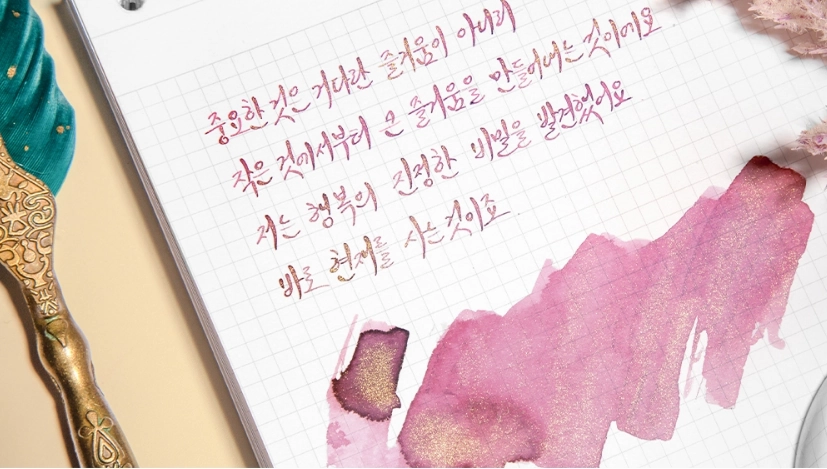 중요한 것은 거다란 즐거움이 아니라
작은 것에서부터 온 즐거움을 만들어내는것이에요
저는 행복의 진정한 비밀을 발견했어요
바로 현재를 사는것이죠.